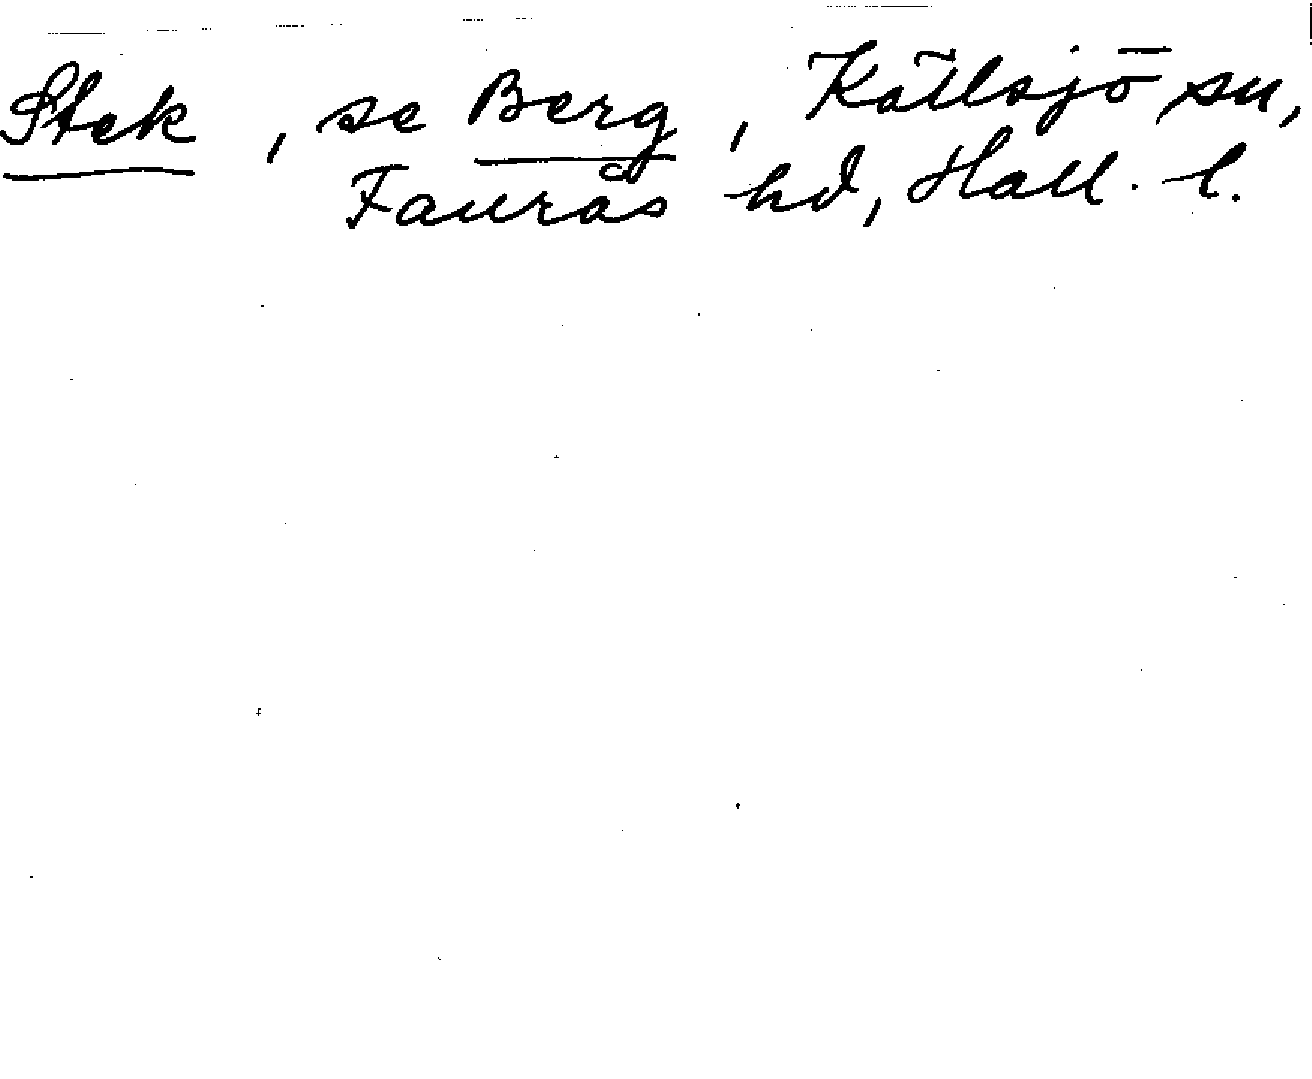 Stek, se Berg, Källsjö sn,
Faurås hd, Hall. l.